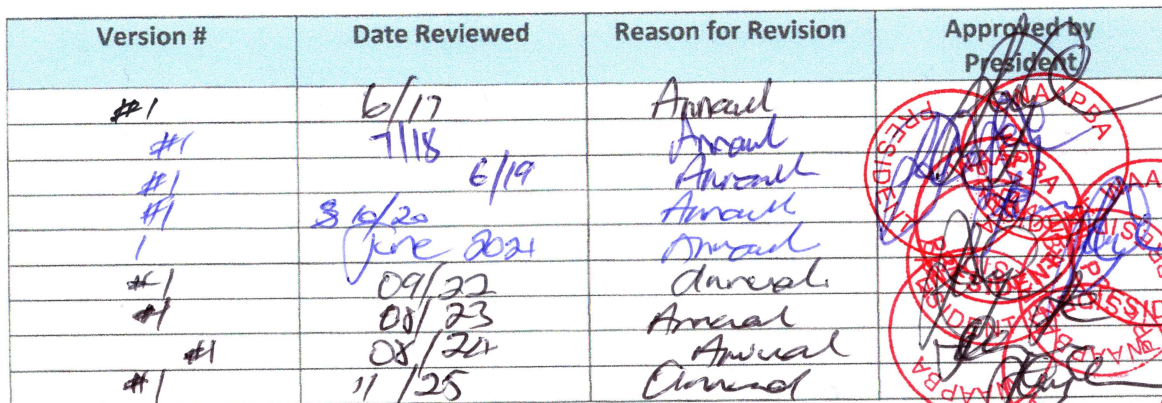 Version # Date Reviewed Reason for Revision Approved by President
#1 6/17 Annual
#1 7/18 Annual
#1 6/19 Annual
#1 10/20 Annual
1 June 2021 Annual
#1 09/22 Annual
#1 08/23 Annual
#1 08/24 Annual
#1 11/25 Annual
WAAPBA
PRESIDENT
WAAPBA
PRESIDENT
WAAPBA
PRESIDENT